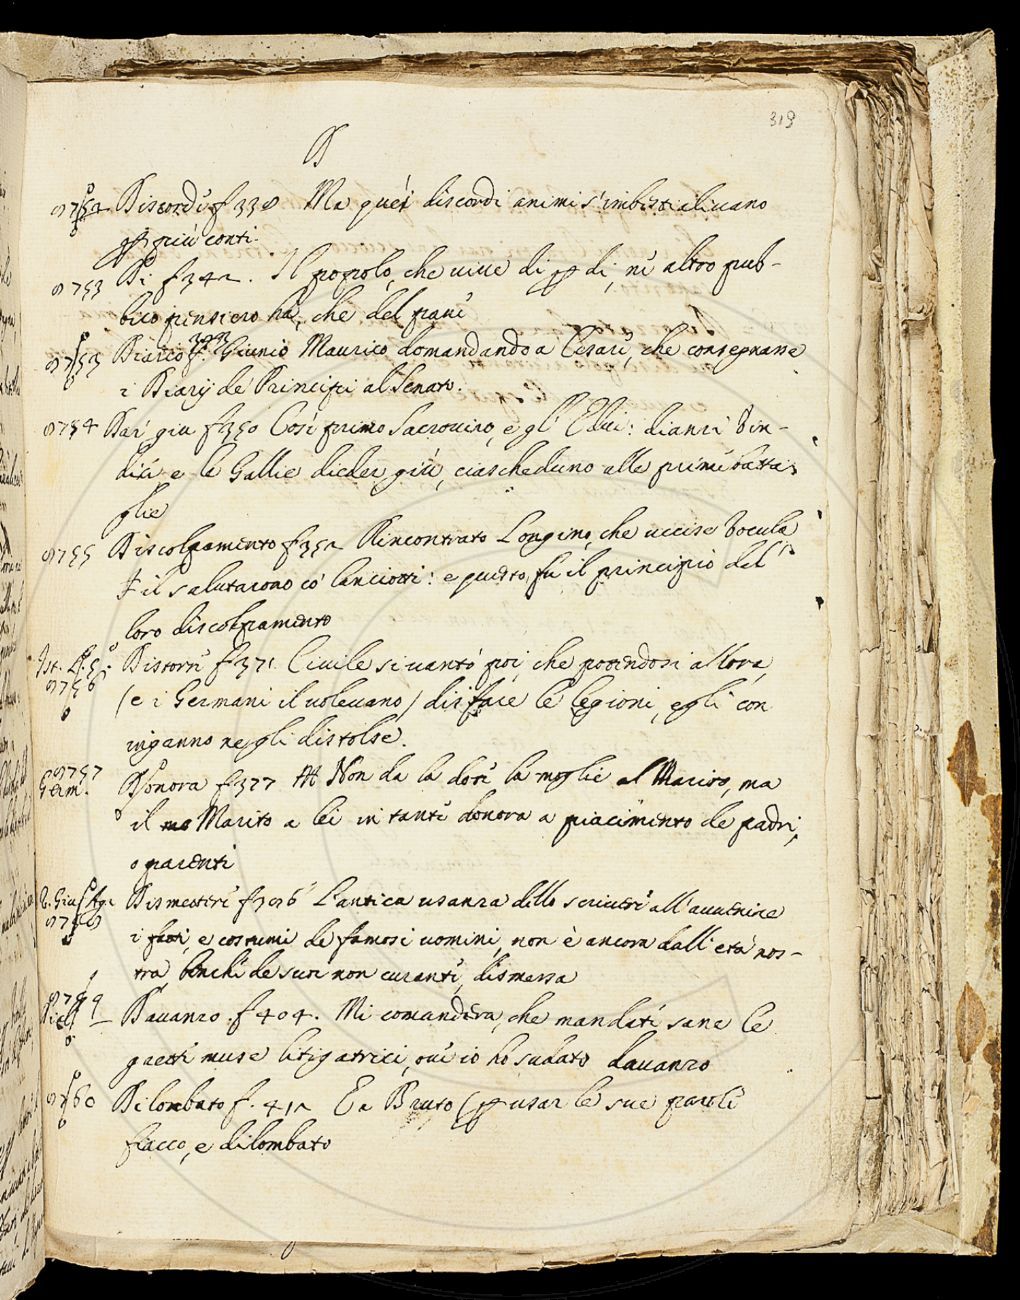 319
D
9752 Discordi f 338 Ma quei discordi animi s'imbestialivano
p più conti.
9753 Di f 342. Il popolo, che vive di p dì, ne altro pub-
blico pensiero ha, che del pane
9753 Diario f. 303 Giunio Maurico domandando a Cesare, che consegnasse
i Diarij de Principi al Senato.
9754 Dar giu f 350 Così primo Sacroviro, e gl' Edui: dianzi Vin-
dici e le Gallie dieder giù, ciascheduno alle prime batta-
glie
9755 Discolpamento f 352 Rincontrato Longino, che uccise Vocula
il salutarono co' lanciotti: e questo fu il principio del
loro discolpamento
Ist. L. 5.
9756 Distorre f 371. Civile si vantò poi, che potendosi allora,
(e i Germani il volevano) disfare le legioni, egli con
inganno ne gli distolse.
9757
Germ. Donora f 377 Non da la dote la moglie al Marito, ma
il Marito a lei in tanti donora a piacimento de padri,
o parenti
V. Giu. Agr.
Dismettere f 396 L'antica usanza dello scrivere all'avvenire
i fatti, e costumi de famosi uomini, non è ancora dall'età nos-
tra benche de suoi non curante, dismessa
9759
Davanzo. f 404. Mi comandera, che mandate sane le
gaette muse litigatrici, que io ho sudato davanzo
9760 Dilombato f. 412 E a Bruto (p usar le sue parole
fiacco, e dilombato